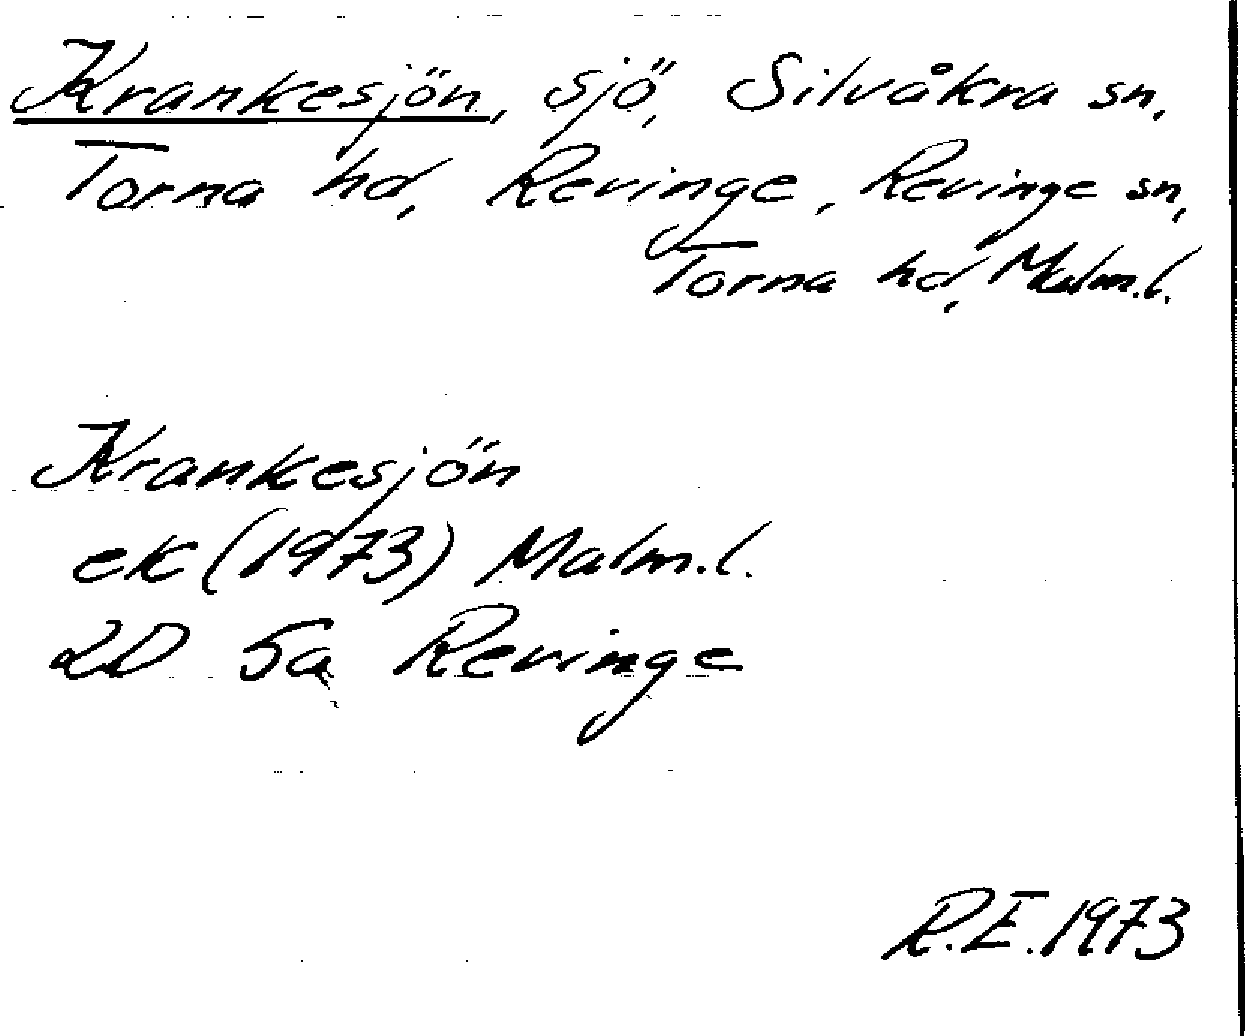 Krankesjön, sjö, Silvåkra sn,
Torna hd, Revinge, Revinge sn,
Torna hd, Malm.l.
Krankesjön
ek (1973) Malm.l.
2D 5a Revinge
R.E. 1973